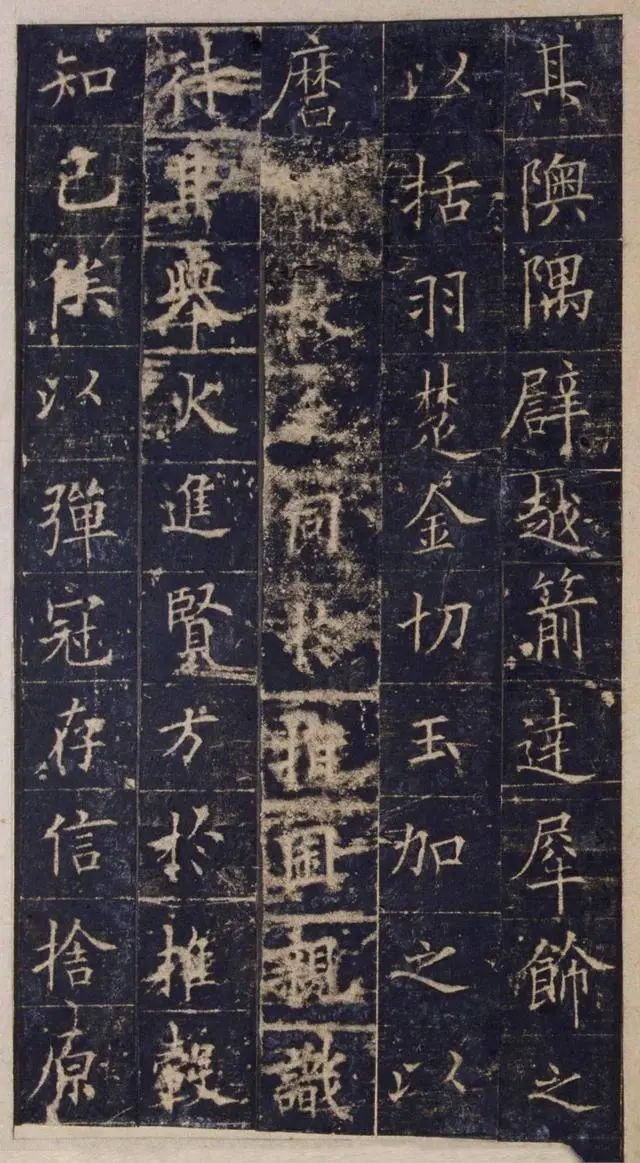 其隩隅辟越箭達犀飾之
以括羽楚金切玉加之以
磨救乏同於指囷親識
待其舉火進賢方於推轂
知己俟以彈冠存信捨原